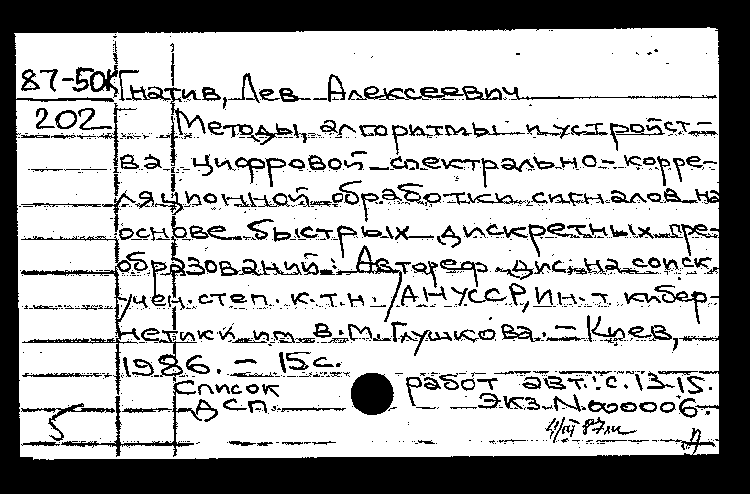 87-50К Гнатив, Лев Алексеевич
202 Методы, алгоритмы и устройст-
ва цифровой спектрально-корре-
ляционной обработки сигналов на
основе быстрых дискретных пре-
образований: Автореф. дис. на соиск.
учен. степ. к.т.н. / АН УССР, Ин-т кибер-
нетики им В.М. Глушкова. – Киев,
1986. – 15 с.
Список работ авт.: с. 13-15.
5 ДСП. Экз. N 000006.
4/III 87